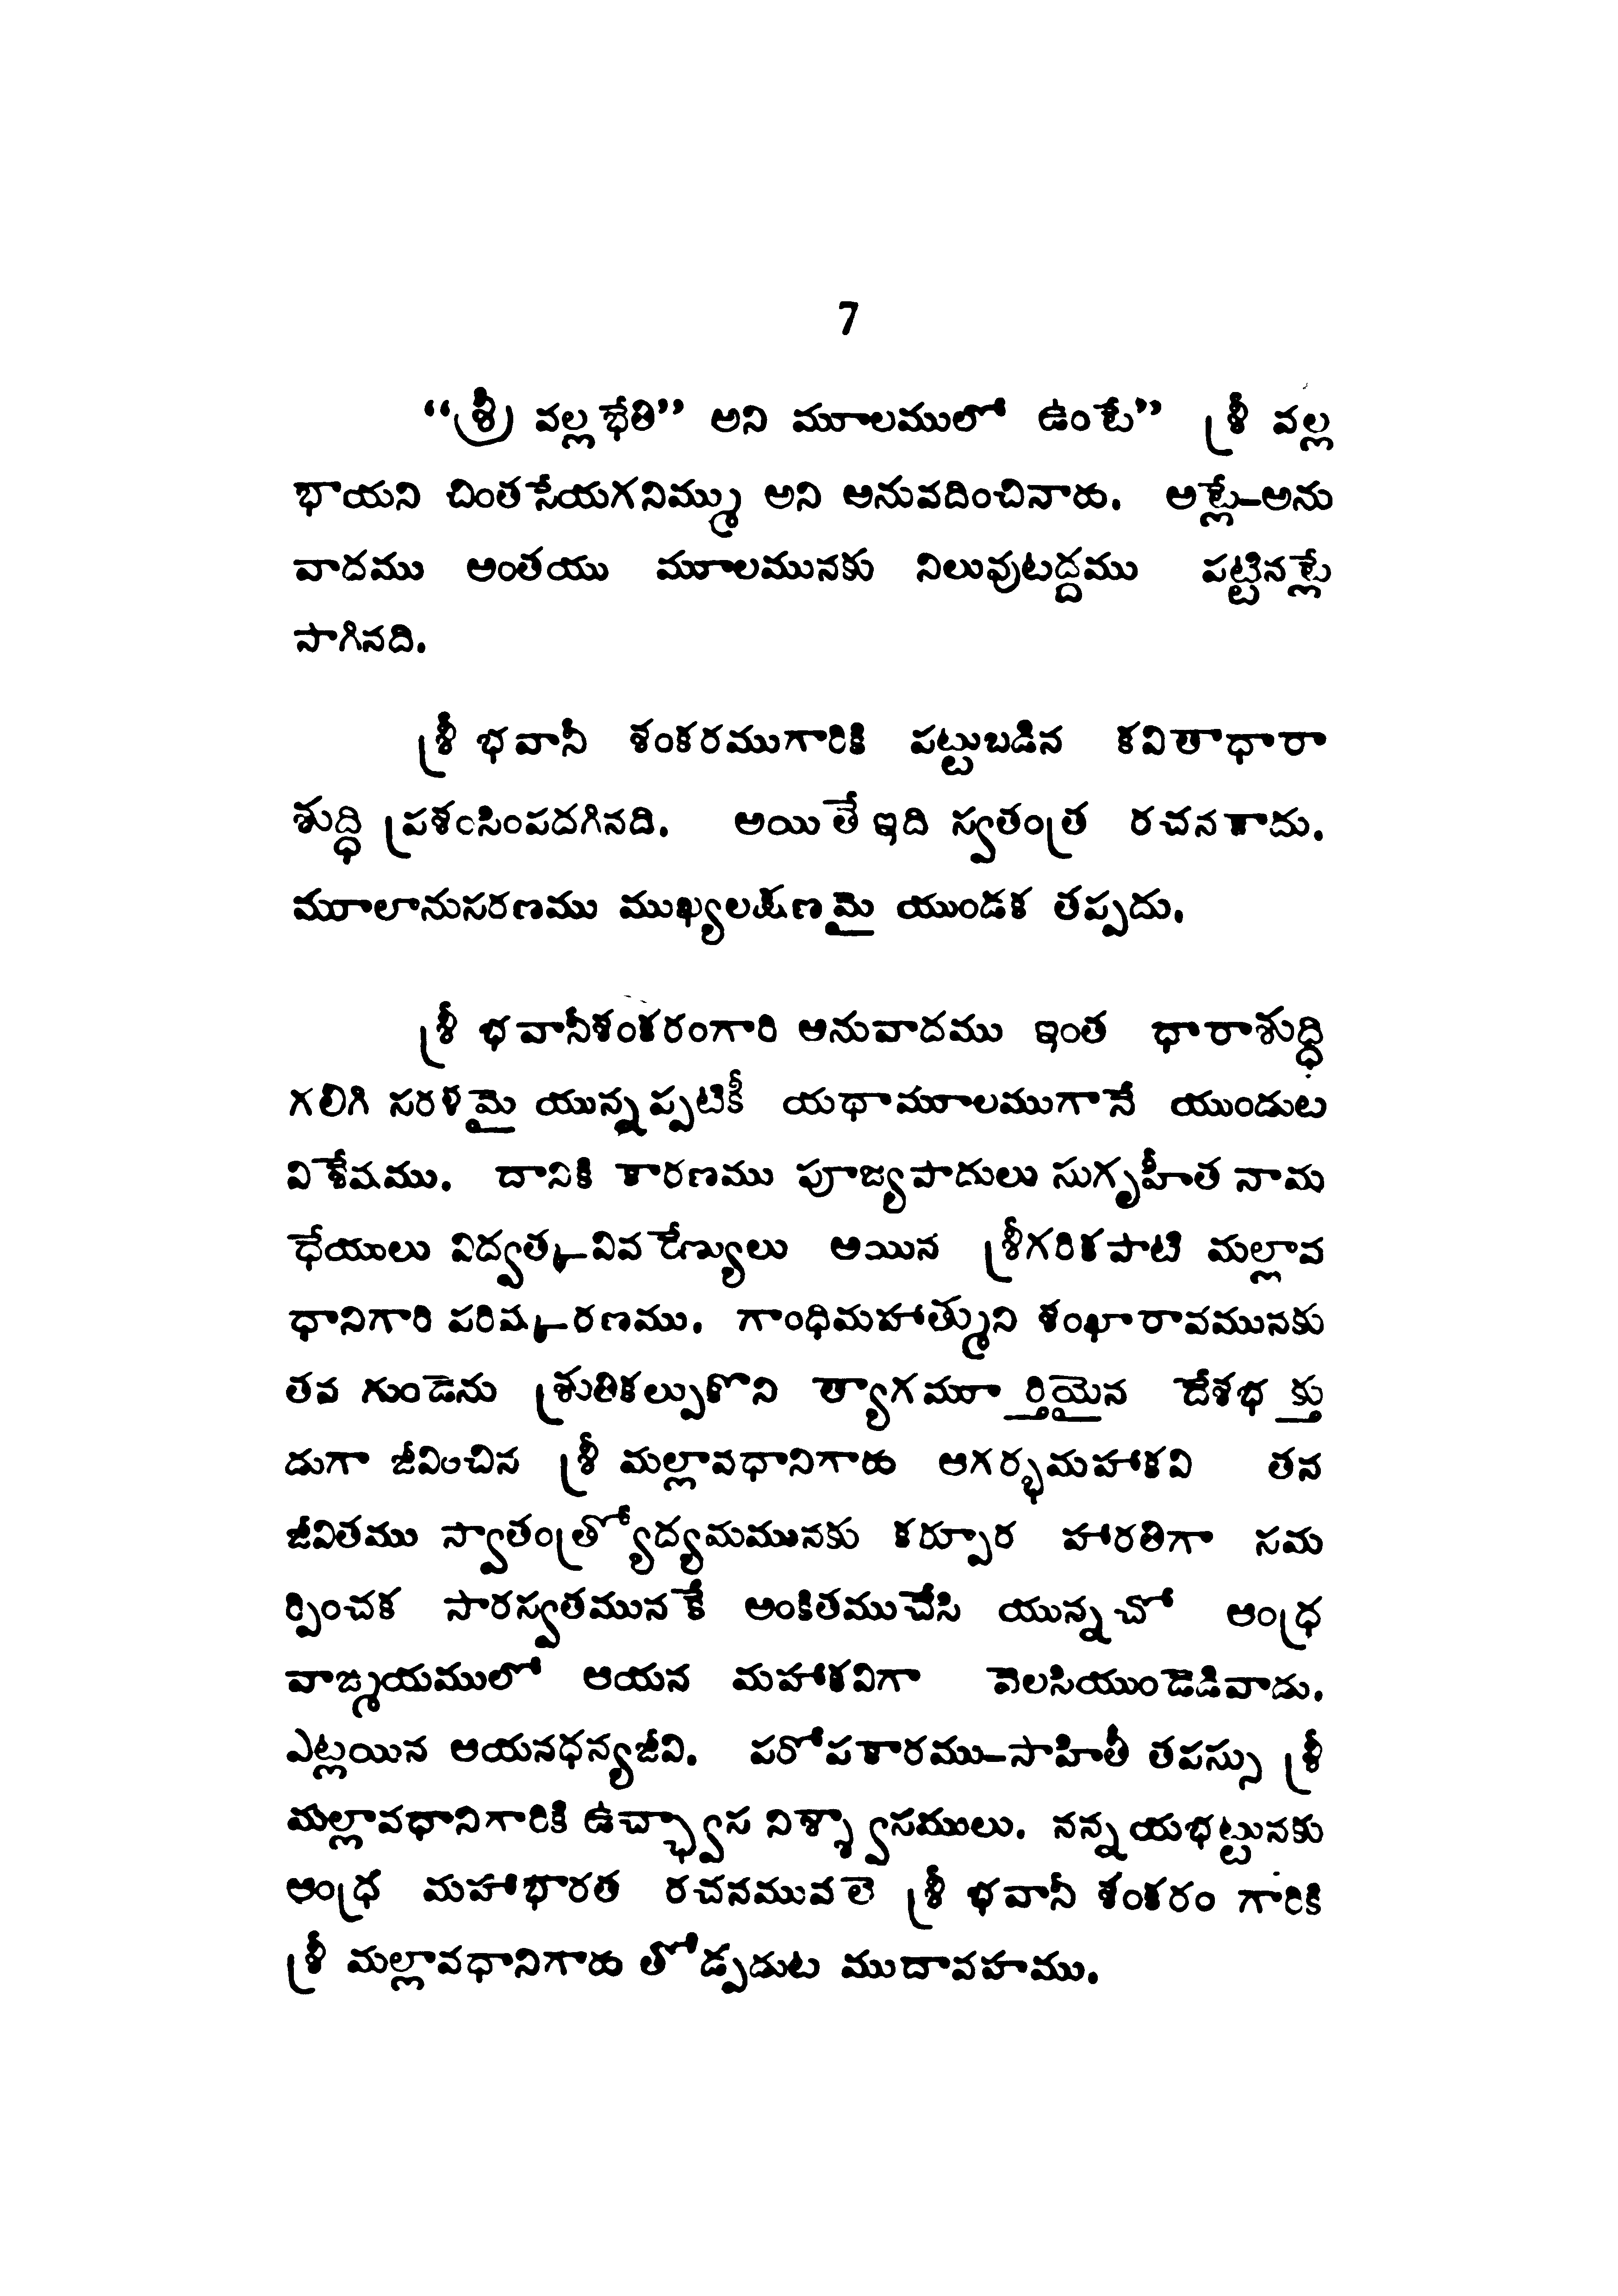 7
“శ్రీ వల్లభేతి” అని మూలములో ఉంటే” శ్రీ వల్ల
భాయని చింతసేయగనిమ్ము అని అనువదించినారు. అట్లే–అను
వాదము అంతయు మూలమునకు నిలువుటద్దము పట్టినట్లే
సాగినది.
శ్రీ భవానీ శంకరముగారికి పట్టుబడిన కవితాధారా
శుద్ధి ప్రశంసింపదగినది. అయితే ఇది స్వతంత్ర రచనకాదు.
మూలానుసరణము ముఖ్యలక్షణమై యుండక తప్పదు.
శ్రీ భవానీశంకరంగారి అనువాదము ఇంత ధారాశుద్ధి
గలిగి సరళమై యున్నప్పటికీ యథామూలముగానే యుండుట
విశేషము. దానికి కారణము పూజ్యపాదులు సుగృహీత నామ
ధేయులు విద్వత్కవివరేణ్యులు అయిన శ్రీగరికపాటి మల్లావ
ధానిగారి పరిష్కరణము. గాంధిమహాత్ముని శంఖారావమునకు
తవ గుండెను శ్రుతికల్పుకొని త్యాగమూర్తియైన దేశభక్తు
డుగా జీవించిన శ్రీ మల్లావధానిగారు ఆగర్భమహాకవి తన
జీవితము స్వాతంత్ర్యోద్యమమునకు కర్పూర హారతిగా సమ
ర్పించక సారస్వతమునకే అంకితముచేసి యున్నచో ఆంధ్ర
వాఙ్మయములో ఆయన మహాకవిగా వెలసియుండెడివాడు.
ఎట్లయిన ఆయనధన్యజీవి. పరోపకారము–సాహితీ తపస్సు శ్రీ
మల్లావధానిగారికి ఉచ్ఛ్వాస నిశ్శ్వాసములు. నన్నయభట్టునకు
ఆంధ్ర మహాభారత రచనమువలె శ్రీ భవానీ శంకరం గారికి
శ్రీ మల్లావధానిగారు తోడ్పడుట ముదావహము.